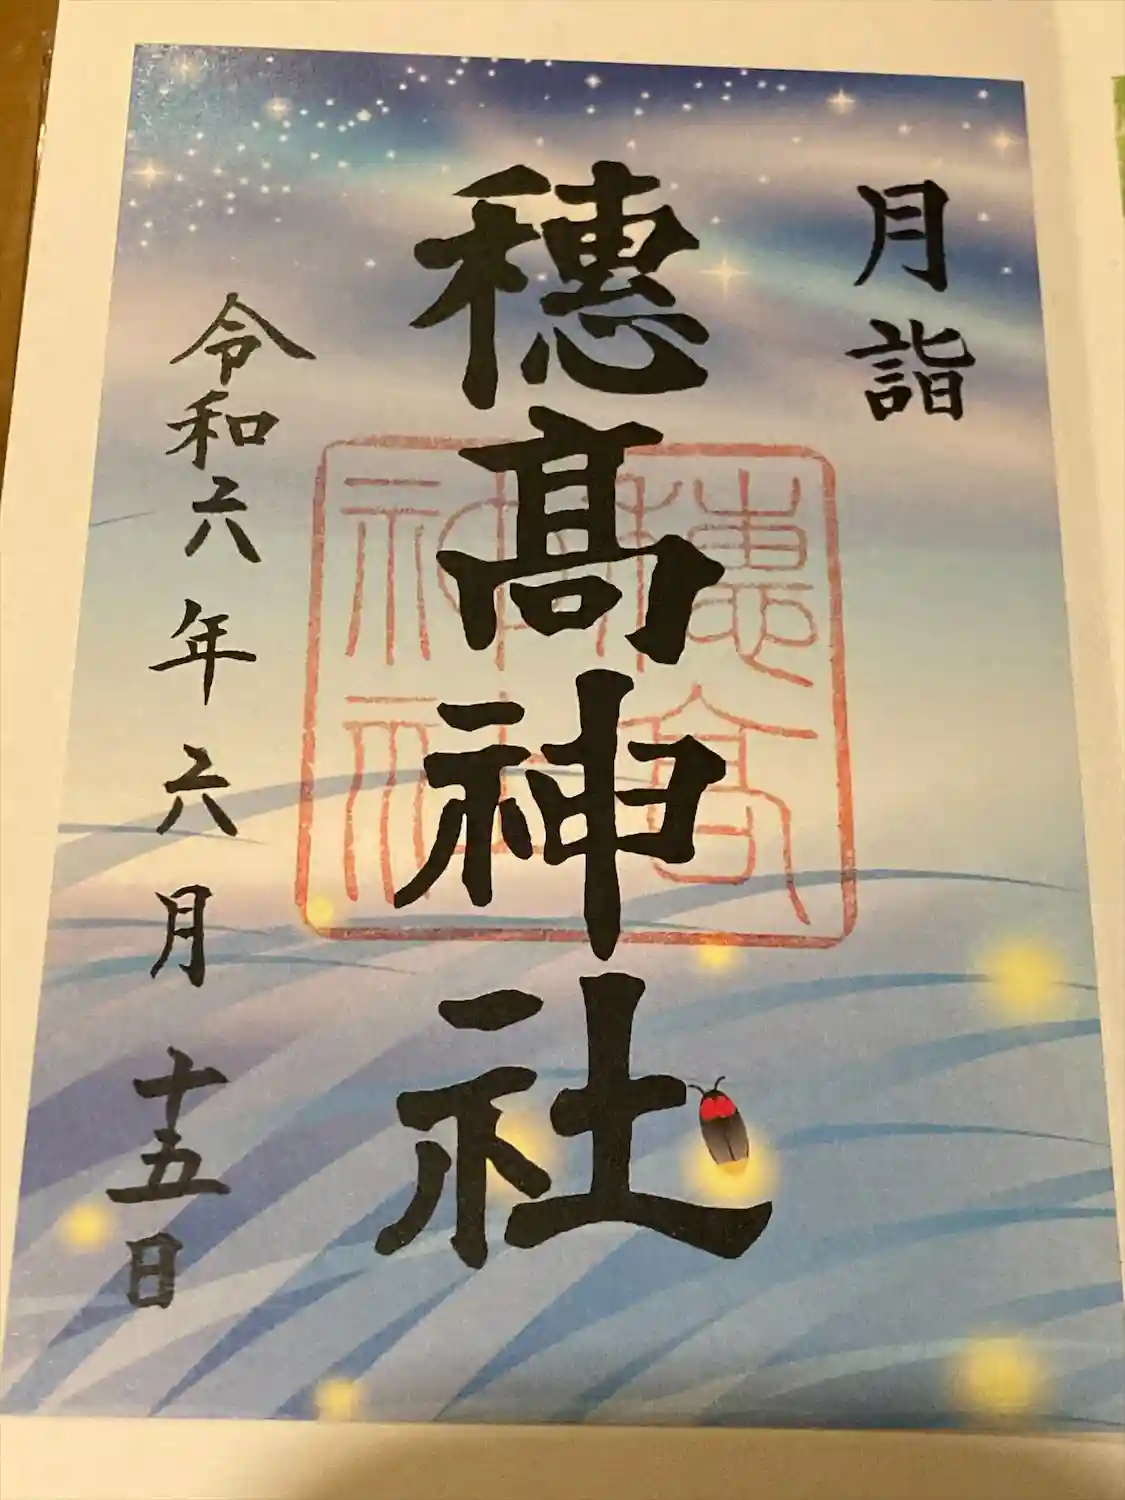 月詣
穗髙神社
穗髙神社
令和六年六月十五日